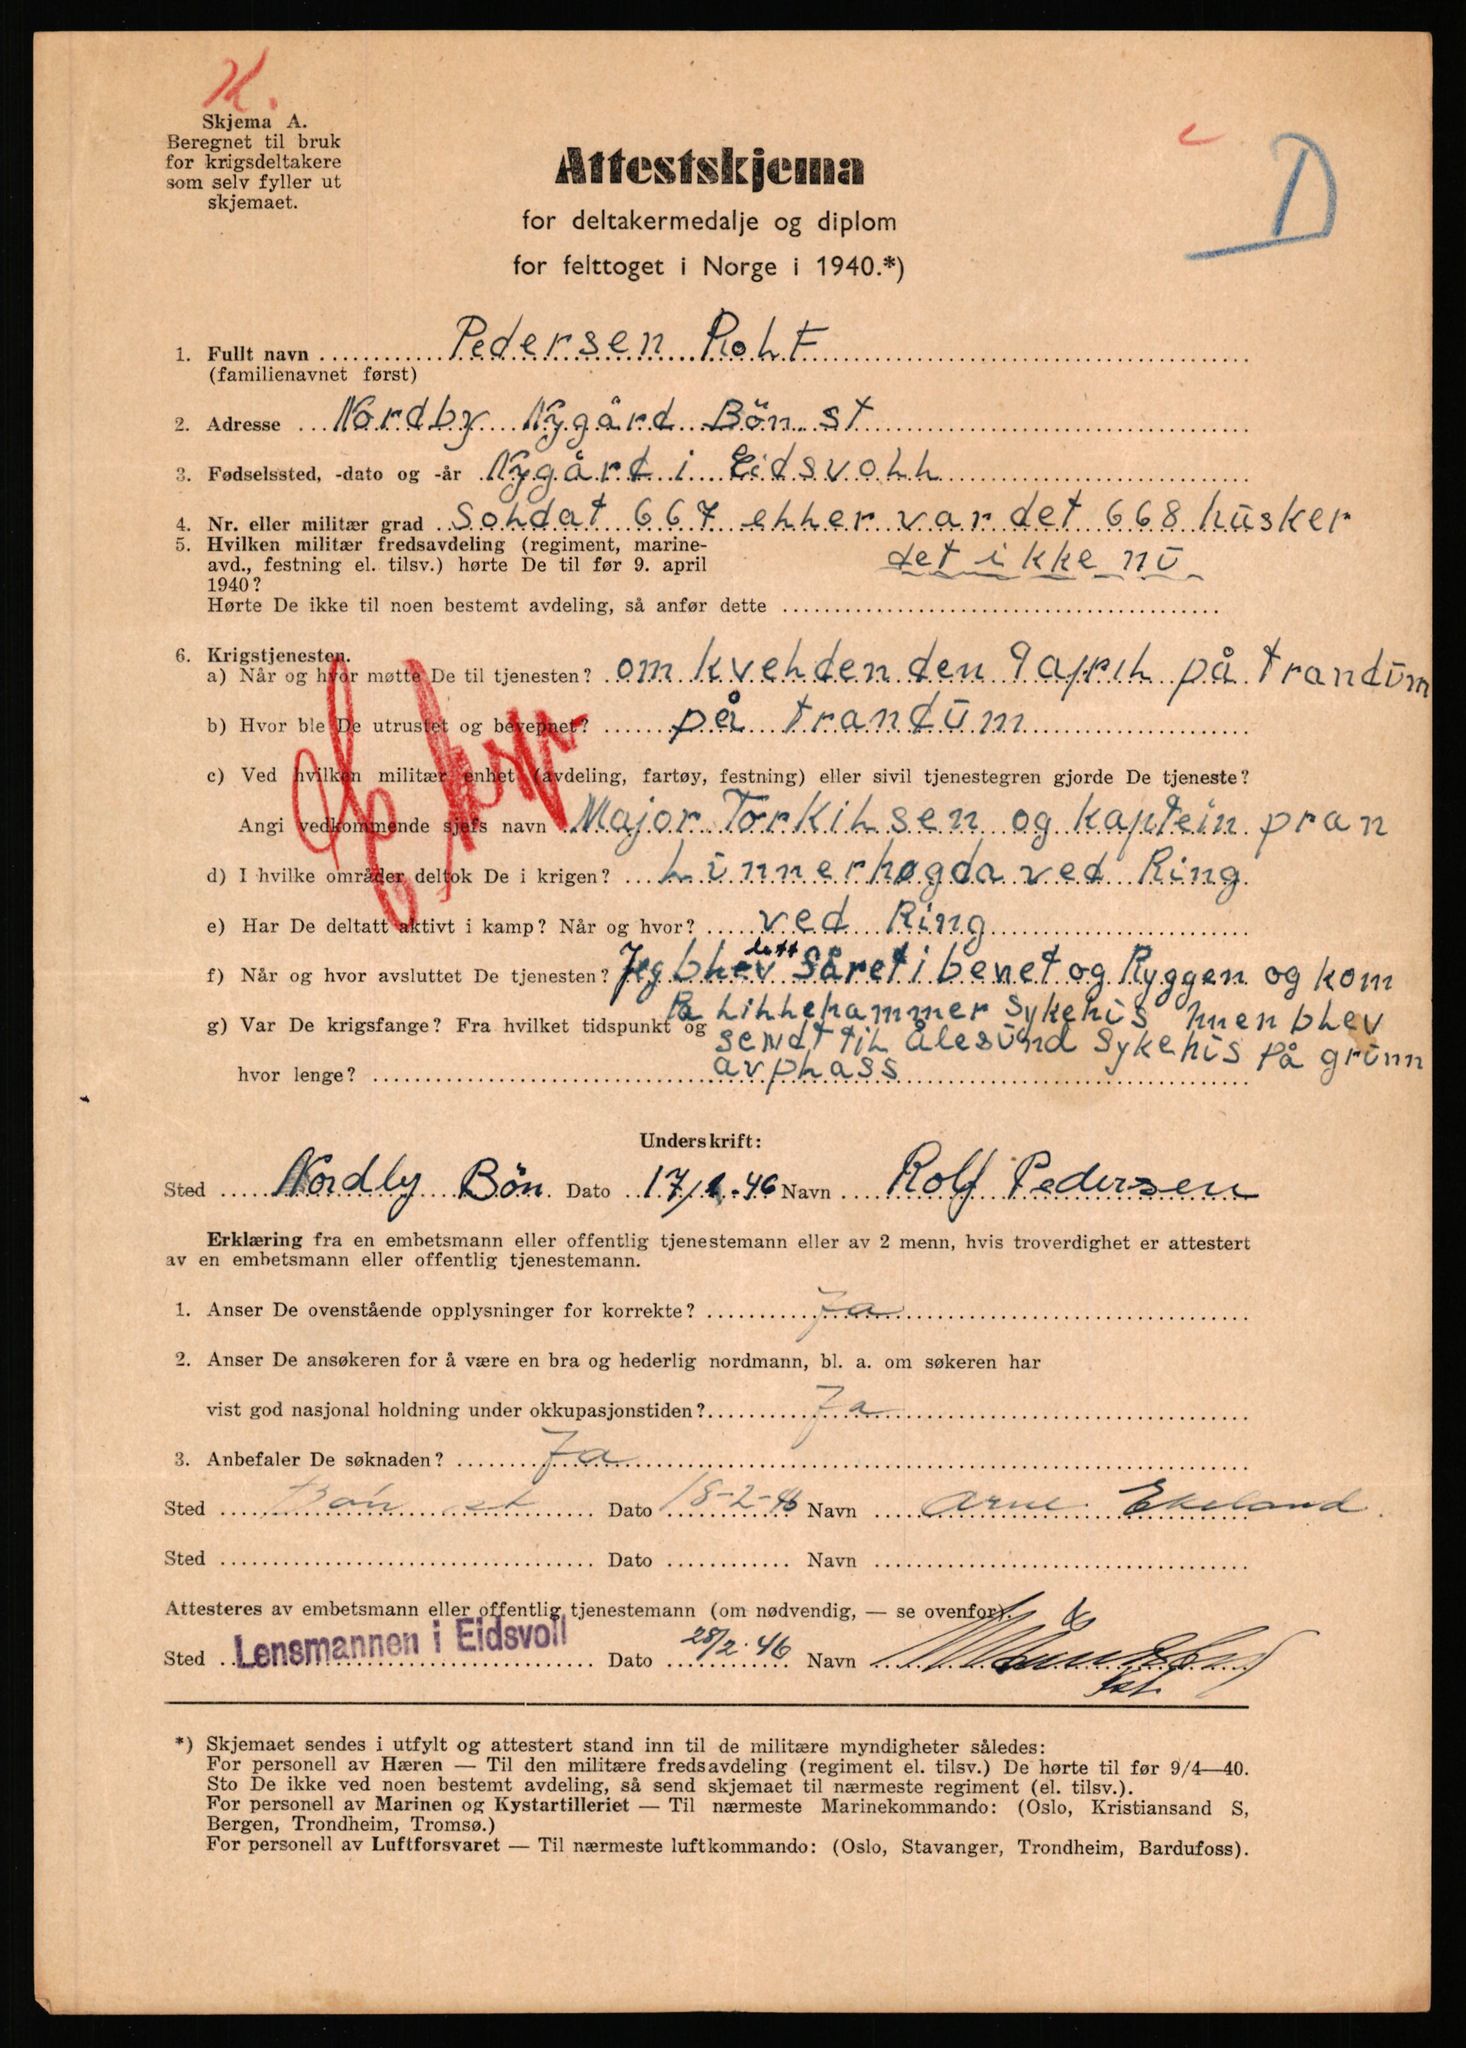 K.
Skjema A.
Beregnet til bruk
for krigsdeltakere
som selv fyller ut
skjemaet.
D
Attestskjema
for deltakermedalje og diplom
for felttoget i Norge i 1940.*)
1. Fullt navn Pedersen Rolf
(familienavnet først)
2. Adresse Nordby Nygård Bön st
3. Fødselssted, -dato og -år Nygård i Eidsvoll
4. Nr. eller militær grad Soldat 667 eller var det 668 husker
5. Hvilken militær fredsavdeling (regiment, marine-
avd., festning el. tilsv.) hørte De til før 9. april
1940?
det ikke nu
Hørte De ikke til noen bestemt avdeling, så anfør dette
6. Krigstjenesten.
a) Når og hvor møtte De til tjenesten? om kvelden den 9 april på trandum
b) Hvor ble De utrustet og bevepnet? på trandum
c) Ved hvilken militær enhet (avdeling, fartøy, festning) eller sivil tjenestegren gjorde De tjeneste?
Angi vedkommende sjefs navn Major Torkilsen og kaptein pran
d) I hvilke områder deltok De i krigen? Lunnerhøgda ved Ring
e) Har De deltatt aktivt i kamp? Når og hvor? ved Ring
f) Når og hvor avsluttet De tjenesten? Jeg blev lett såret i benet og Ryggen og kom
g) Var De krigsfange? Fra hvilket tidspunkt og På Lillehammer sykehus men blev
sendt til Ålesund sykehus på grunn
hvor lenge? av plass
Underskrift:
Sted Nordby Bön Dato 17/2-46 Navn Rolf Pedersen
Erklæring fra en embetsmann eller offentlig tjenestemann eller av 2 menn, hvis troverdighet er attestert
av en embetsmann eller offentlig tjenestemann.
1. Anser De ovenstående opplysninger for korrekte? Ja
2. Anser De ansøkeren for å være en bra og hederlig nordmann, bl. a. om søkeren har
vist god nasjonal holdning under okkupasjonstiden? Ja
3. Anbefaler De søknaden? Ja
Sted Bön st Dato 18-2-46 Navn Arne Ekeland.
Sted Dato Navn
Attesteres av embetsmann eller offentlig tjenestemann (om nødvendig, — se ovenfor).
Sted Lensmannen i Eidsvoll Dato 28/2-46 Navn
*) Skjemaet sendes i utfylt og attestert stand inn til de militære myndigheter således:
For personell av Hæren — Til den militære fredsavdeling (regiment el. tilsv.) De hørte til før 9/4—40.
Sto De ikke ved noen bestemt avdeling, så send skjemaet til nærmeste regiment (el. tilsv.).
For personell av Marinen og Kystartilleriet — Til nærmeste Marinekommando: (Oslo, Kristiansand S,
Bergen, Trondheim, Tromsø.)
For personell av Luftforsvaret — Til nærmeste luftkommando: (Oslo, Stavanger, Trondheim, Bardufoss).